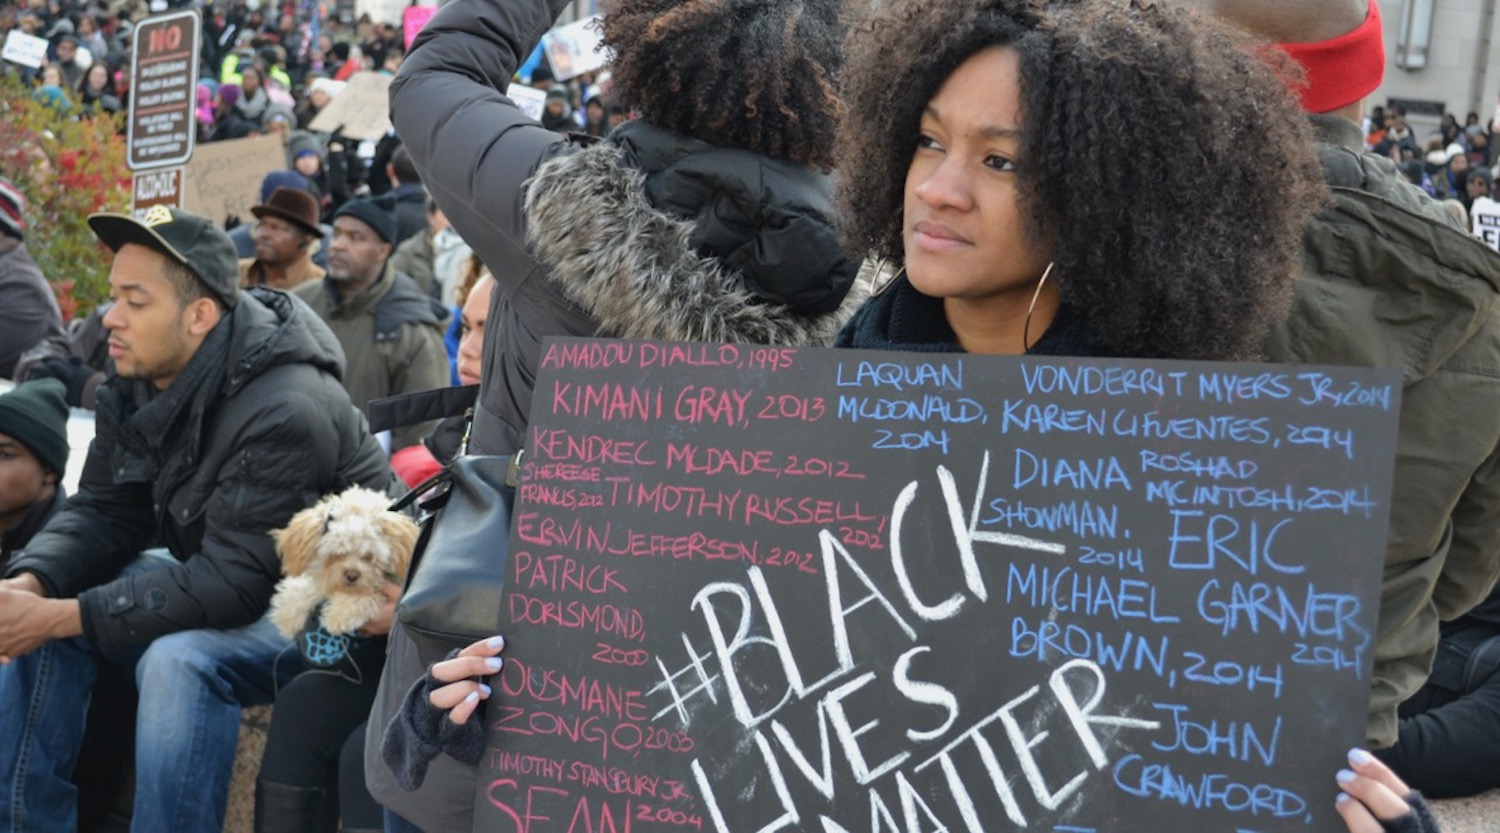 NO
ALCOHOLIC
AMADOU DIALLO, 1995
KIMANI GRAY, 2013
KENDREC MCDADE, 2012
SHEREESE
FRANCIS, 2012
TIMOTHY RUSSELL,
2012
ERVIN JEFFERSON, 2012
PATRICK
DORISMOND,
2000
OUSMANE
ZONGO, 2003
TIMOTHY STANSBURY JR,
2004
SEAN
LAQUAN
MCDONALD,
2014
VONDERRIT MYERS JR, 2014
KAREN CIFUENTES, 2014
DIANA
SHOWMAN.
2014
ROSHAD
MCINTOSH, 2014
ERIC
GARNER,
2014
MICHAEL
BROWN, 2014
JOHN
CRAWFORD,
#BLACK
LIVES
MATTER